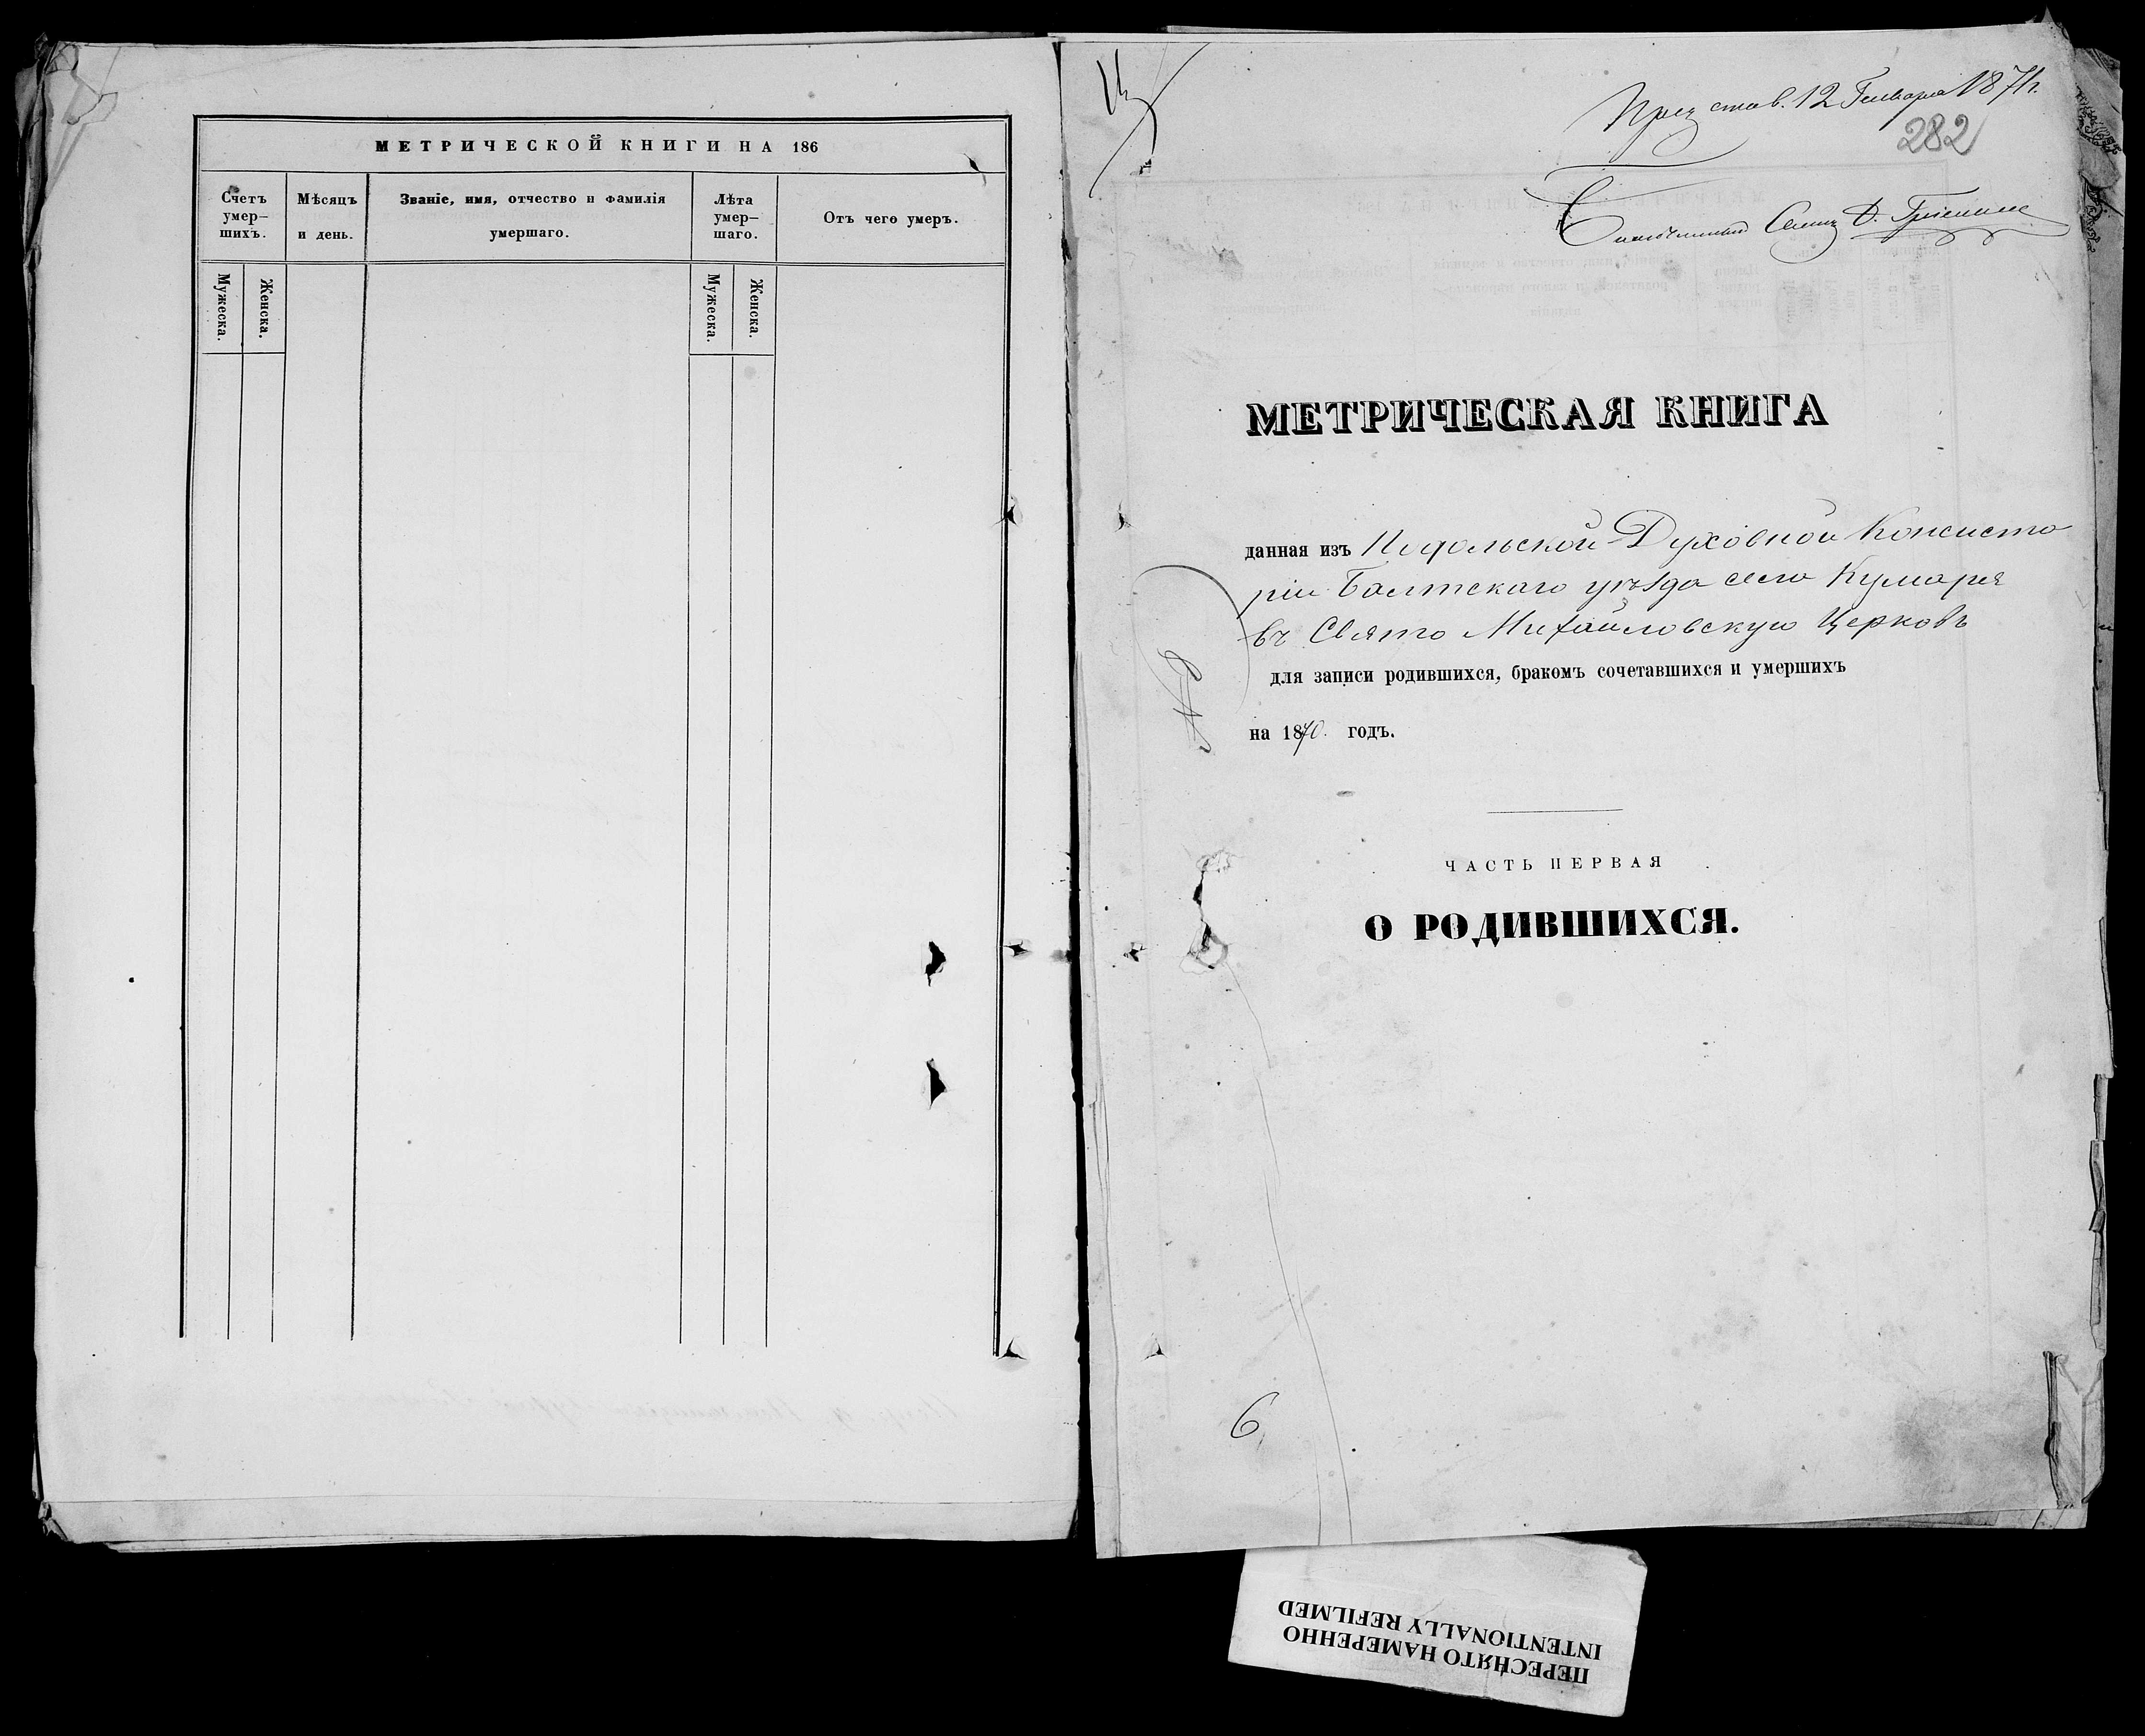 МЕТРИЧЕСКОЙ КНИГИ НА 186
Счетъ умер–шихъ.
Мѣсяцъ и день.
Званіе, имя, отчество и фамилія умершаго.
Лѣта умер–шаго.
Отъ чего умеръ.
Мужеска.
Женска.
Мужеска.
Женска.
став. 12 Генваря 1871 г.
282
МЕТРИЧЕСКАЯ КНИГА
данная изъ Подольской Духовной Консисто
ріи Балтскаго уѣзда село Кумаря
въ Свято Михайловскую Церковь
для записи родившихся, бракомъ сочетавшихся и умершихъ
на 1870. годъ.
ЧАСТЬ ПЕРВАЯ
О РОДИВШИХСЯ.
6
ПЕРЕСНЯТО НАМЕРЕННО
INTENTIONALLY REFILMED